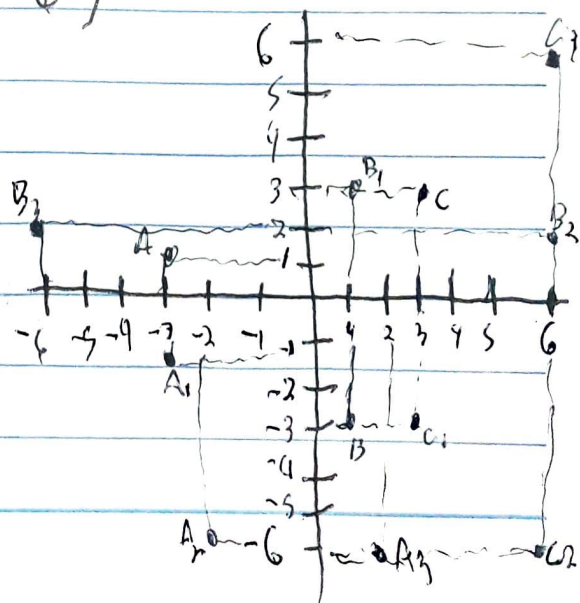 6 C3
5
4
3 B1 C
B3 2 B2
A 1
-6 -5 -4 -3 -2 -1 1 2 3 4 5 6
A1 -1
-2
-3 B C1
-4
-5
A2 -6 A3 C2